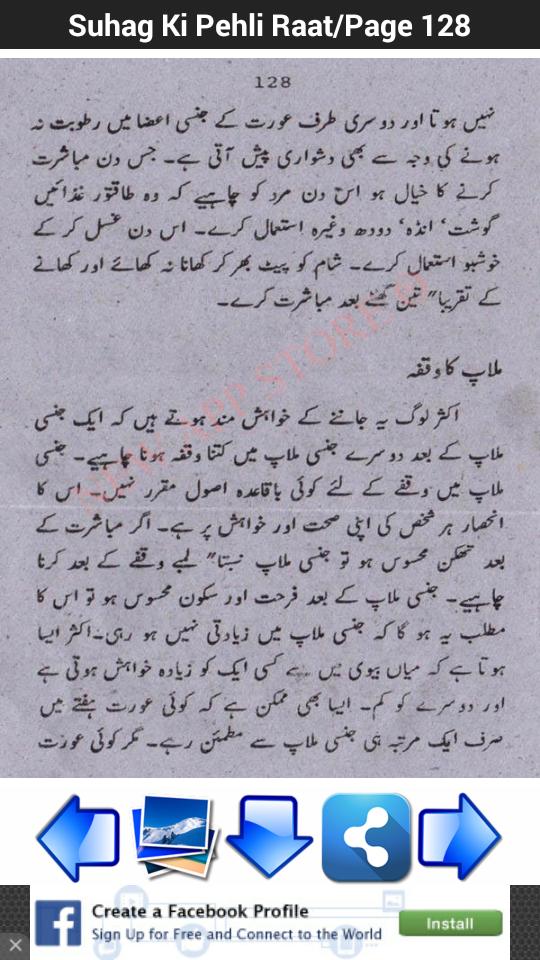 Suhag Ki Pehli Raat/Page 128
128
نہیں ہوتا اور دوسری طرف عورت کے جنسی اعضا میں رطوبت نہ
ہونے کی وجہ سے بھی دشواری پیش آتی ہے۔ جس دن مباشرت
کرنے کا خیال ہو اس دن مرد کو چاہیے کہ وہ طاقتور غذائیں
گوشت، انڈہ، دودھ وغیرہ استعمال کرے۔ اس دن غسل کر کے
خوشبو استعمال کرے۔ شام کو پیٹ بھر کر کھانا نہ کھائے اور کھانے
کے تقریبا" تین گھنٹے بعد مباشرت کرے۔
ملاپ کا وقفہ
اکثر لوگ یہ جاننے کے خواہش مند ہوتے ہیں کہ ایک جنسی
ملاپ کے بعد دوسرے جنسی ملاپ میں کتنا وقفہ ہونا چاہیے۔ جنسی
ملاپ میں وقفے کے لئے کوئی باقاعدہ اصول مقرر نہیں۔ اس کا
انحصار ہر شخص کی اپنی صحت اور خواہش پر ہے۔ اگر مباشرت کے
بعد تھکن محسوس ہو تو جنسی ملاپ نسبتا" لمبے وقفے کے بعد کرنا
چاہیے۔ جنسی ملاپ کے بعد فرحت اور سکون محسوس ہو تو اس کا
مطلب یہ ہو گا کہ جنسی ملاپ میں زیادتی نہیں ہو رہی۔ اکثر ایسا
ہوتا ہے کہ میاں بیوی میں سے کسی ایک کو زیادہ خواہش ہوتی ہے
اور دوسرے کو کم۔ ایسا بھی ممکن ہے کہ کوئی عورت ہفتے میں
صرف ایک مرتبہ ہی جنسی ملاپ سے مطمئن رہے۔ مگر کوئی عورت
NEW APP STORE
Create a Facebook Profile
Sign Up for Free and Connect to the World
Install